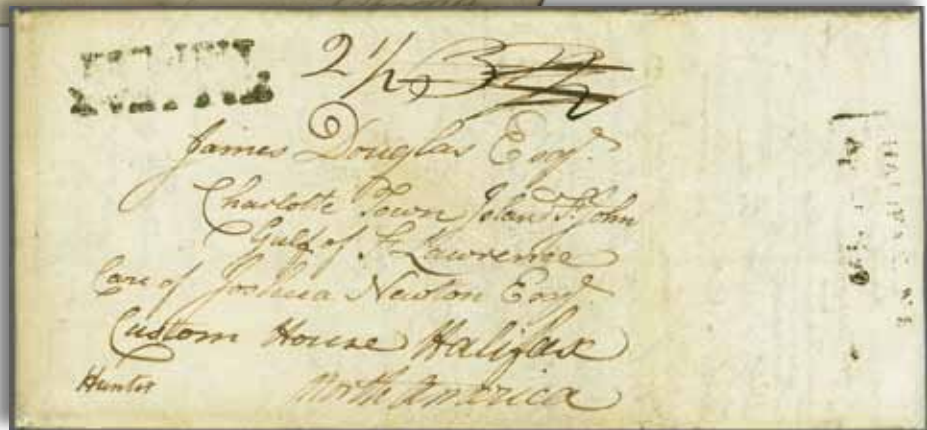 2½
James Douglas Esqr.
Charlotte Town Island St. John
Gulf of St Lawrence
Care of Joshua Newton Esqr.
Custom House Halifax
Hunter
North America
HALIFAX